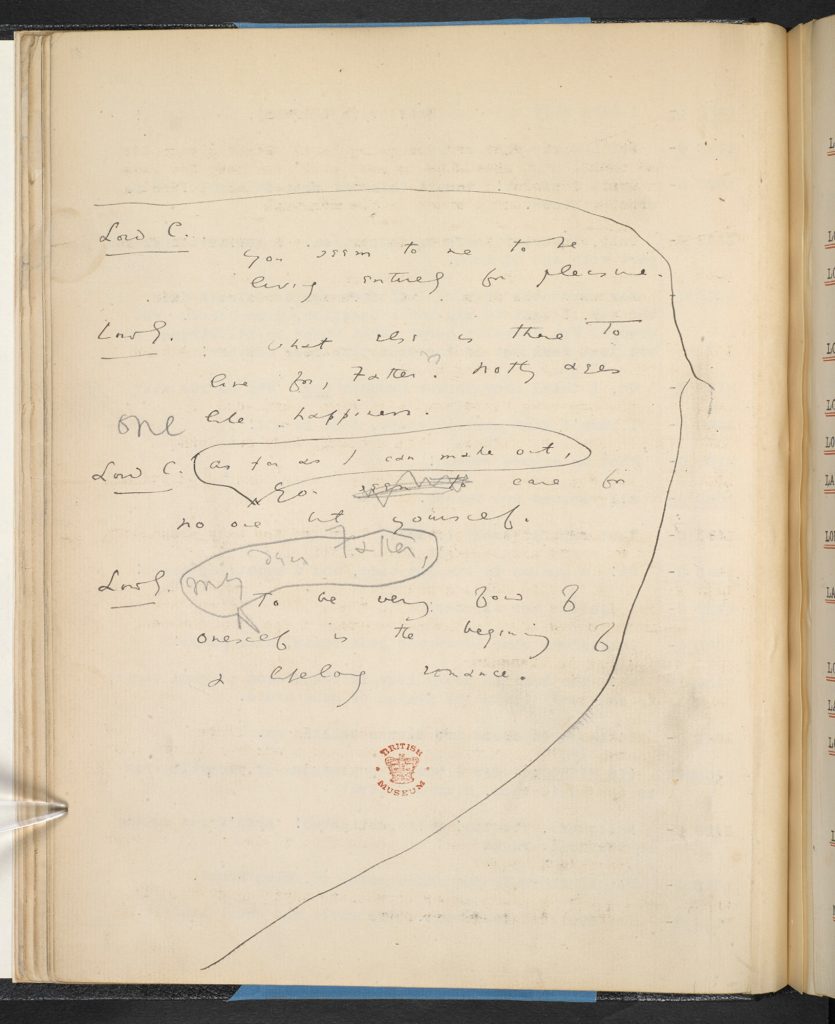 Lord C. You seem to me to be
living entirely for pleasure.
Lord G. What else is there to
live for, Father? Nothing ages
one like happiness.
Lord C. As far as I can make out,
you seem to care for
no one but yourself.
my dear Father,
Lord G. To be very fond of
oneself is the beginning of
a lifelong romance.
BRITISH
MUSEUM